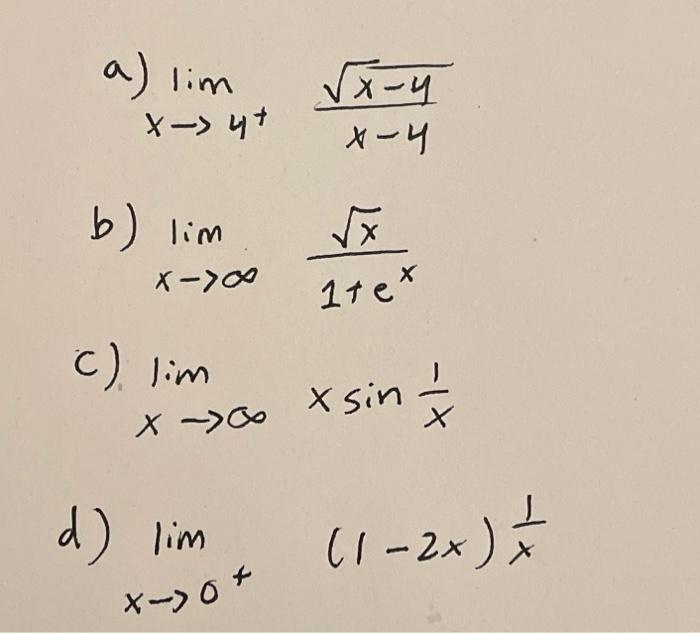 a) lim √x-4 / x-4
x -> 4+
b) lim √x / 1+e^x
x -> ∞
c) lim x sin 1/x
x -> ∞
d) lim (1-2x)^1/x
x -> 0+